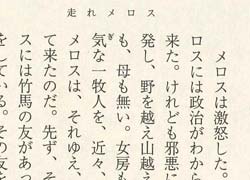 走れメロス
メロスは激怒した。
ロスには政治がわから
来た。けれども邪悪に
発し、野を越え山越え
も、母も無い。女房も
ぎ
気な一牧人を、近々、
メロスは、それゆえ、
て来たのだ。先ず、そ
スには竹馬の友があっ
をしている。その友を